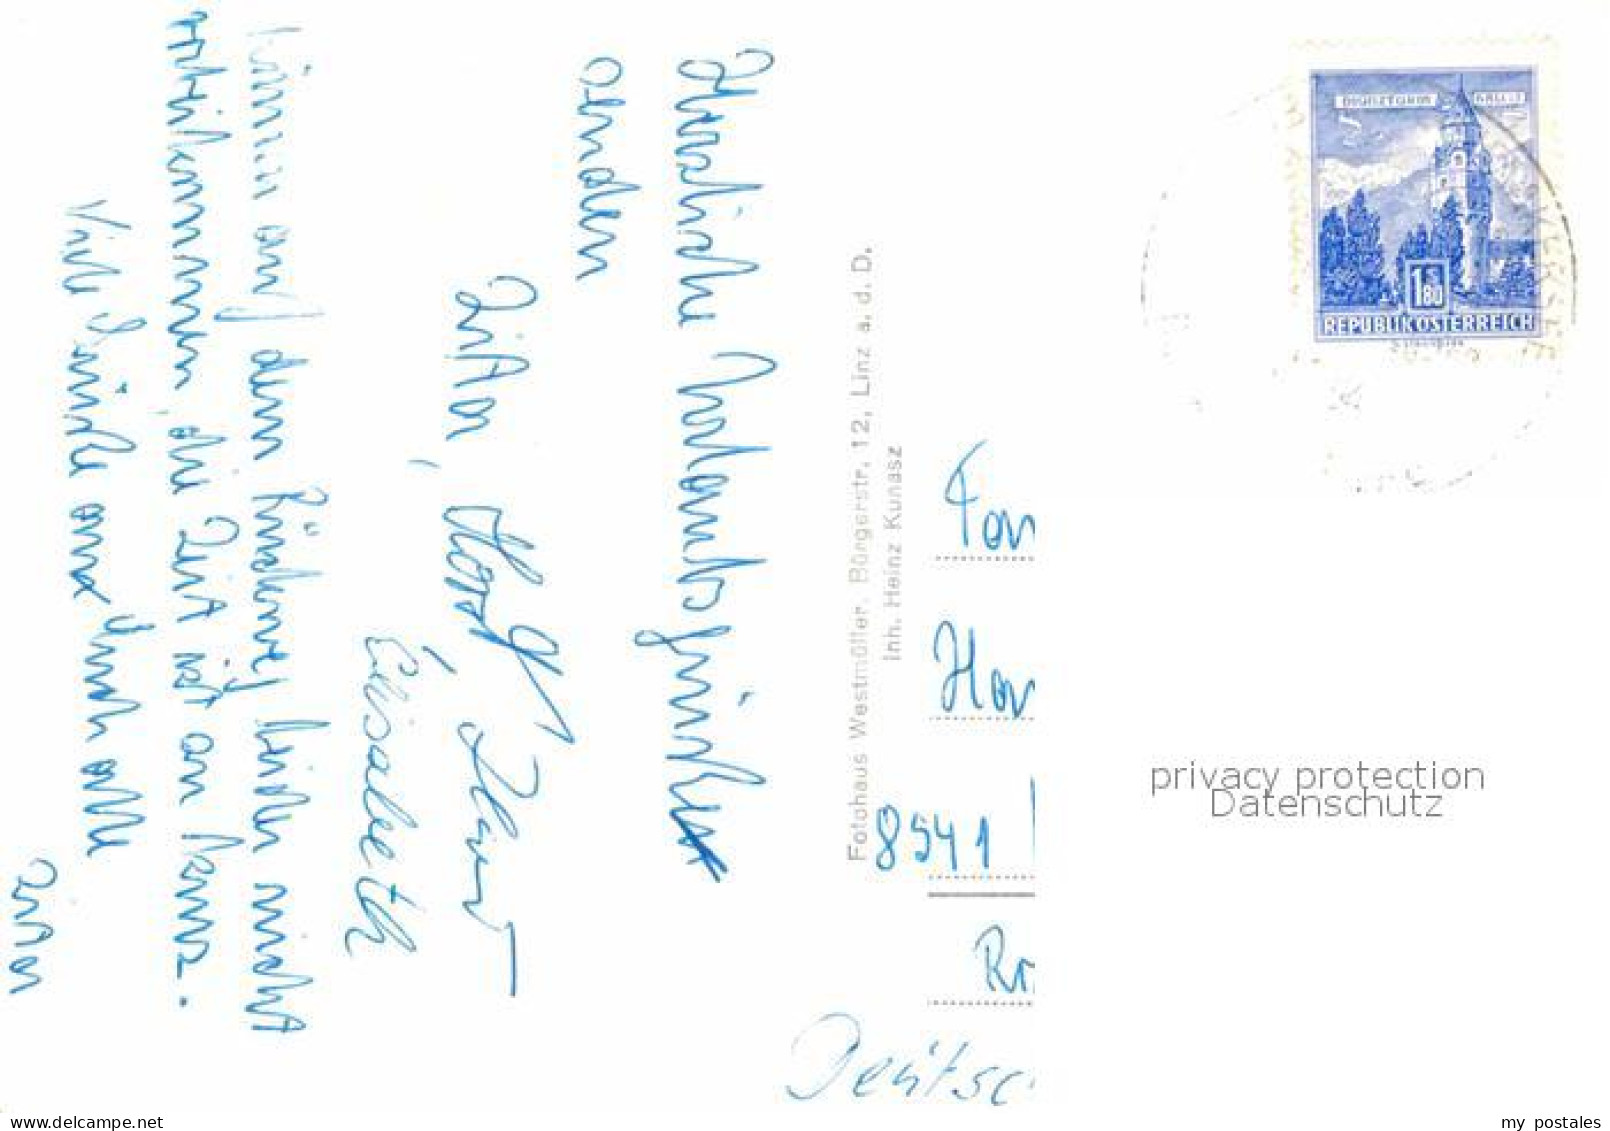 Herzliche Urlaubsgrüße
senden
Zita, Horst
Elisabeth
können auf dem Rückweg leider nicht
vorbeikommen, die Zeit ist an kurz.
Viele Grüße an Euch alle
Zita
Fotohaus Westmüller, Bürgerstr. 12, Linz a. d. D.
Inh. Heinz Kunasz
MÜNZTURM HALL I. T.
1.80
REPUBLIK ÖSTERREICH
Fam
8541
Deutsc
privacy protection
Datenschutz
www.delcampe.net
my_postales